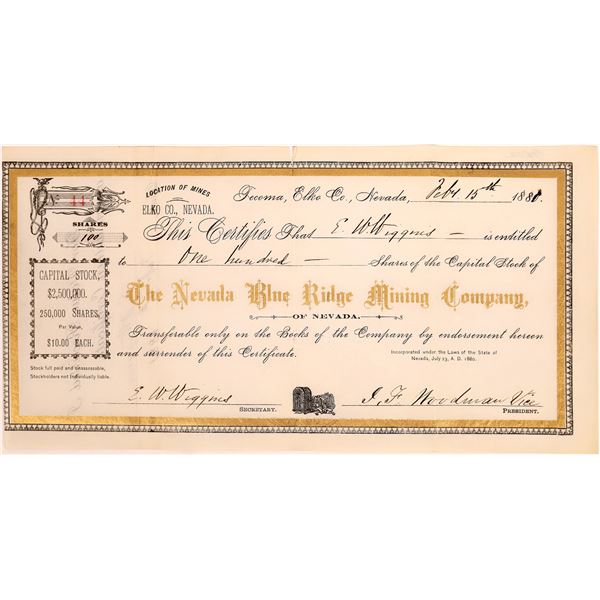 No. 44
SHARES
100
LOCATION OF MINES
ELKO CO., NEVADA.
Tecoma, Elko Co., Nevada, Feby 15th 1881.
This Certifies That E. W. Wiggins is entitled
to One hundred Shares of the Capital Stock of
The Nevada Blue Ridge Mining Company,
OF NEVADA.
Transferable only on the Books of the Company by endorsement hereon
and surrender of this Certificate.
Incorporated under the Laws of the State of
Nevada, July 23, A. D. 1880.
CAPITAL STOCK,
$2,500,000.
250,000 SHARES,
Par Value,
$10.00 EACH.
Stock full paid and unassessable,
Stockholders not Individually liable.
E. W. Wiggins
SECRETARY.
J. F. Woodman Vice
PRESIDENT.